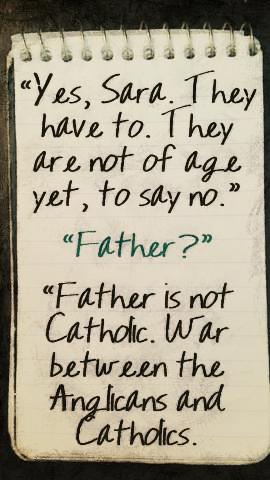 “Yes, Sara. They
have to. They
are not of age
yet, to say no.”
“Father?”
“Father is not
Catholic. War
between the
Anglicans and
Catholics.